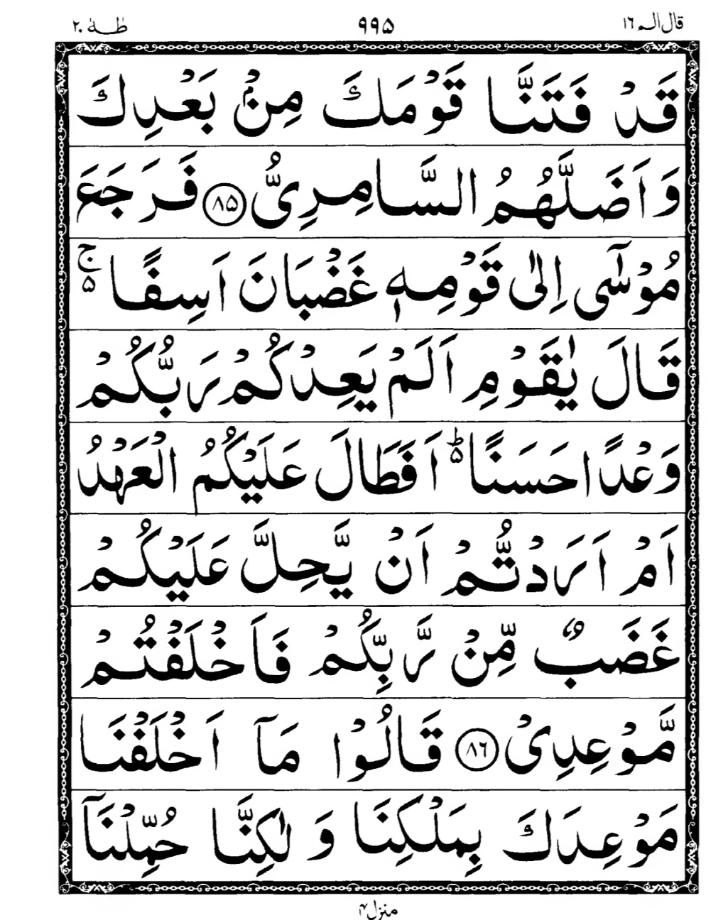 قال الم ١٦ ٩٩٥ طٰهٰ ٢٠
قَدْ فَتَنَّا قَوْمَكَ مِنْۢ بَعْدِكَ
وَاَضَلَّهُمُ السَّامِرِیُّ ﴿٨٥﴾ فَرَجَعَ
مُوْسٰۤی اِلٰی قَوْمِهٖ غَضْبَانَ اَسِفًا ۵ۚ
قَالَ یٰقَوْمِ اَلَمْ یَعِدْكُمْ رَبُّكُمْ
وَعْدًا حَسَنًا ۵ؕ اَفَطَالَ عَلَیْكُمُ الْعَهْدُ
اَمْ اَرَدْتُّمْ اَنْ یَّحِلَّ عَلَیْكُمْ
غَضَبٌ مِّنْ رَّبِّكُمْ فَاَخْلَفْتُمْ
مَّوْعِدِیْ ﴿٨٦﴾ قَالُوْا مَاۤ اَخْلَفْنَا
مَوْعِدَكَ بِمَلْكِنَا وَ لٰكِنَّا حُمِّلْنَاۤ
منزل ٤